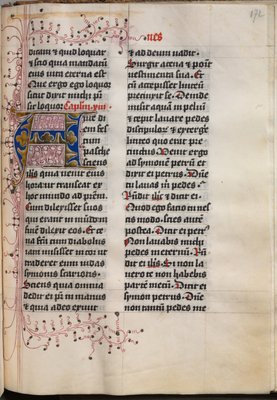 nes
172
dicam ⁊ quid loquar
⁊ scio quia mandatū
eius vita eterna est
Que ergo ego loquor
sicut dixit michi pr̄
sic loquor. Caplm. xiii.
Ante di
em fes
tum
pasche
sciens
ihūs quia venit eius
hora vt transeat ex
hoc mundo ad prēm.
Cum dilexisset suos
qui erant in mundo in
finē dilexit eos. Et ce
na fc̄a cum diabolus
iam misisset in cor vt
traderet eum iudas
symonis scariotis.
Sciens quia omnia
dedit ei pr̄ in manus
⁊ quia a deo exiuit
⁊ ad deum vadit.
Surgit a cena ⁊ ponit
vestimenta sua. Et
cū accepisset linteū
precinxit se. Deinde
misit aquā in peluim
⁊ cepit lauare pedes
discipulorꝝ ⁊ extergere
linteo quo erat pre
cinctus. Venit ergo
ad symonē petrū et
dicit ei petrus. Dn̄e
tu lauas m̄ pedes.
Rn̄dit ihs̄ ⁊ dix̄ ei
Quod ego facio tu nes
cis modo. scies autē
postea. Dicit ei petrꝰ
Non lauabis michi
pedes in eternū. Rn̄
dit ei ihs̄. Si non la
uero te non habebis
partē mecū. Dicit ei
symon petrus. Dn̄e
non tantū pedes me